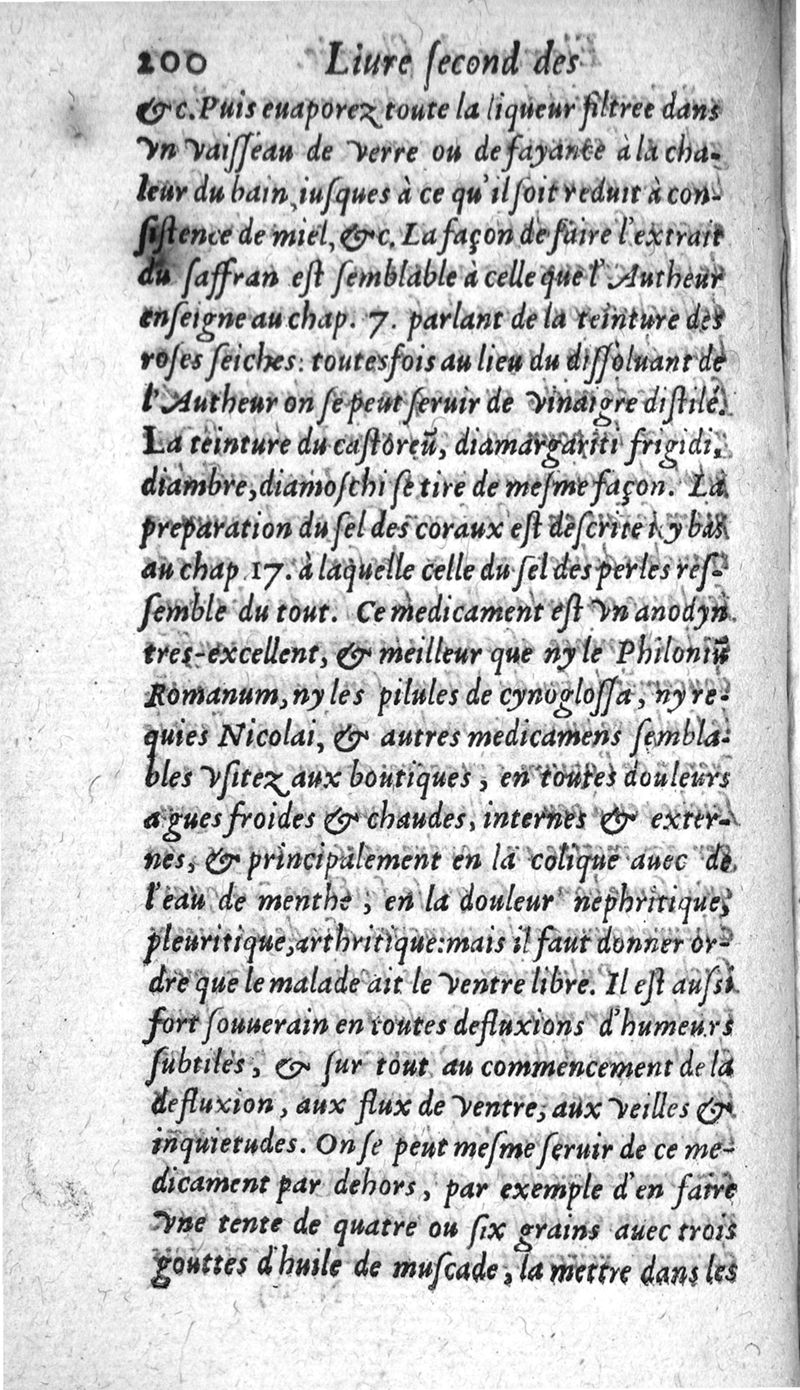 200 Liure ſecond des
&c. Puis euaporez toute la liqueur filtree dans
vn vaiſſeau de verre ou de fayance à la cha-
leur du bain, iuſques à ce qu'il ſoit reduit à con-
ſiſtence de miel, &c. La façon de faire l'extrait
du ſaffran eſt ſemblable à celle que l'Autheur
enſeigne au chap. 7. parlant de la teinture des
roſes ſeiches: toutesfois au lieu du diſſoluant de
l'Autheur on ſe peut ſeruir de vinaigre diſtilé.
La teinture du caſtoreũ, diamargariti frigidi,
diambre, diamoſchi ſe tire de meſme façon. La
preparation du ſel des coraux eſt deſcrite icy bas
au chap 17. à laquelle celle du ſel des perles reſ-
ſemble du tout. Ce medicament eſt vn anodyn
tres-excellent, & meilleur que ny le Philoniũ
Romanum, ny les pilules de cynogloſſa, ny re-
quies Nicolai, & autres medicamens ſembla-
bles vſitez aux boutiques, en toutes douleurs
agues froides & chaudes, internes & exter-
nes, & principalement en la colique auec de
l'eau de menthe, en la douleur nephritique,
pleuritique, arthritique: mais il faut donner or-
dre que le malade ait le ventre libre. Il eſt auſſi
fort ſouuerain en toutes defluxions d'humeurs
ſubtiles, & ſur tout au commencement de la
defluxion, aux flux de ventre, aux veilles &
inquietudes. On ſe peut meſme ſeruir de ce me-
dicament par dehors, par exemple d'en faire
vne tente de quatre ou ſix grains auec trois
gouttes d'huile de muſcade, la mettre dans les